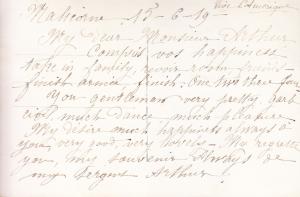 Vive L'Amérique
Malicorne 15-6-19
My Dear Monsieur Arthur
Compris vos happiness
in family, your room
finish armée finish: One two three four
You gentleman very pretty, garb
much dance, much pleasure
My desire much happiness always a
you, very good, very lovely - My regrette
you, my souvenir always de
my Sergent Arthur!